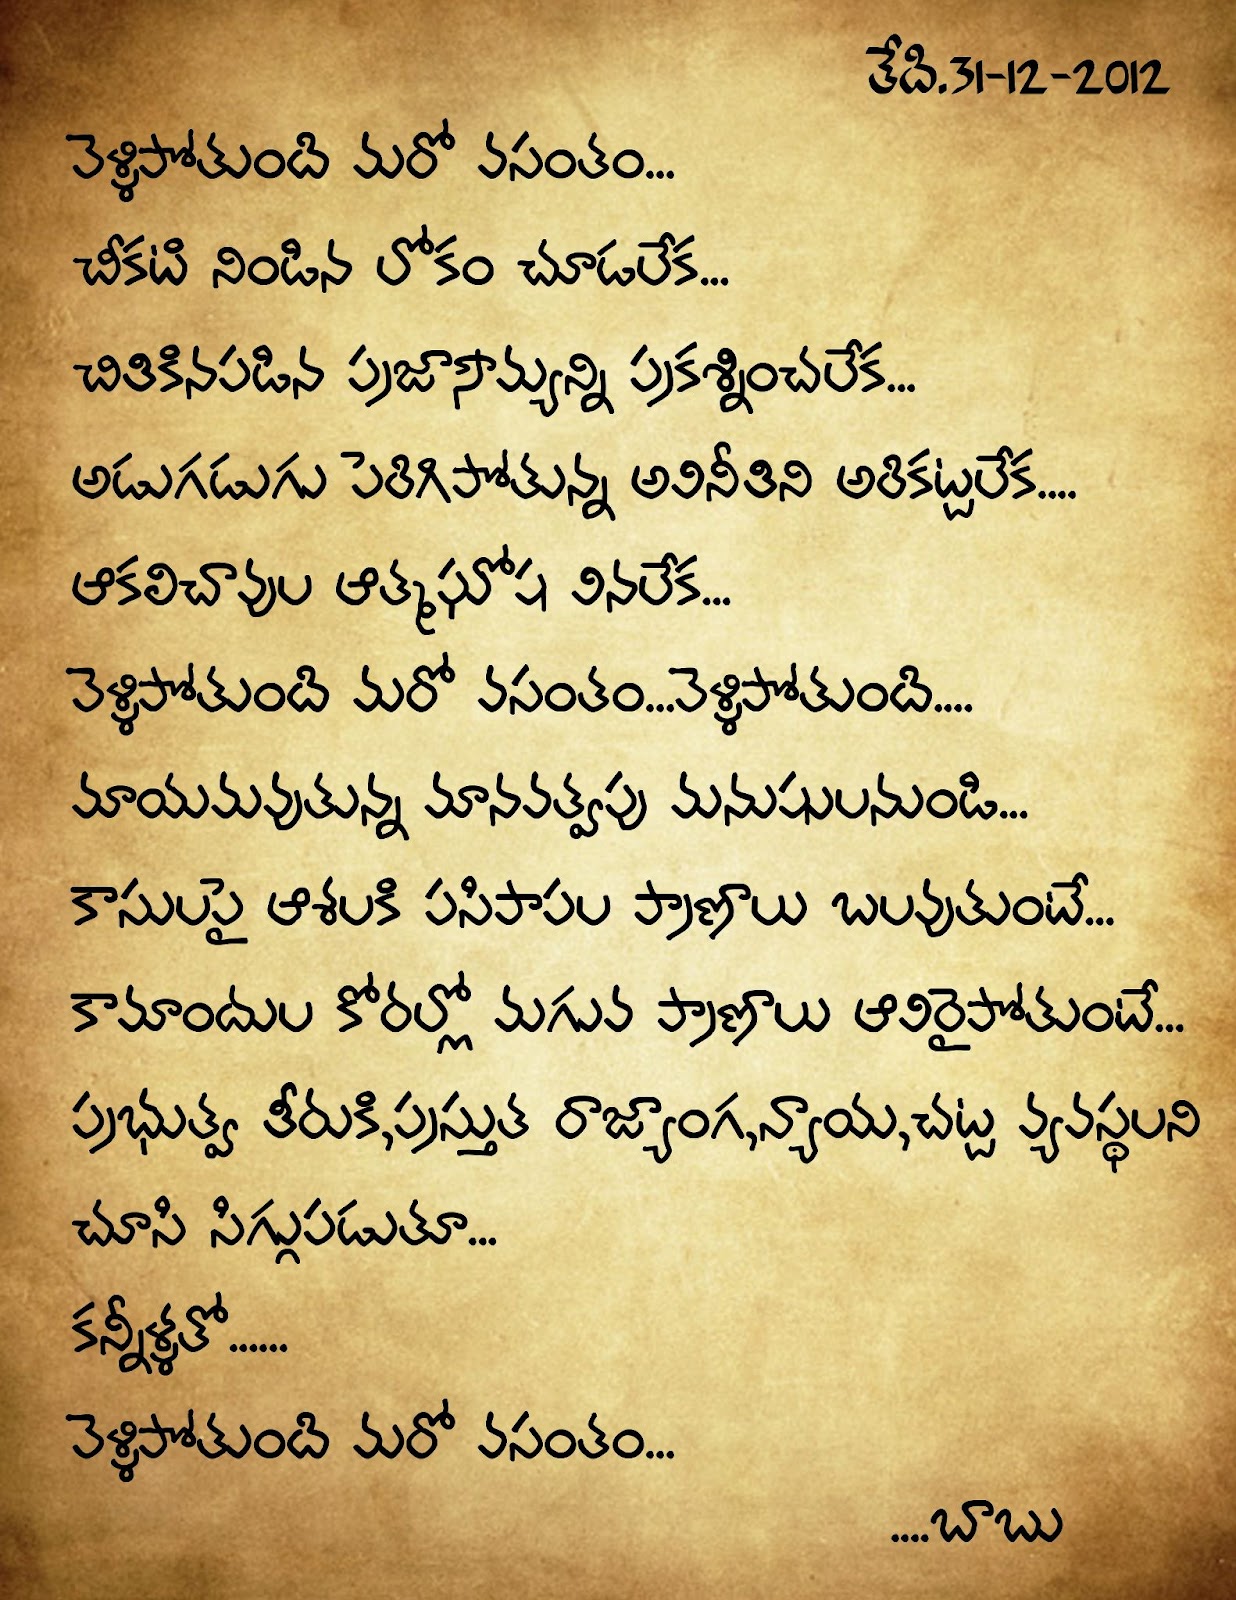 తేది.31-12-2012
వెళ్ళిపోతుంది మరో వసంతం...
చీకటి నిండిన లోకం చూడలేక...
చితికినపడిన ప్రజాసౌమ్యన్ని ప్రకశ్నించలేక...
అడుగడుగు పెరిగిపోతున్న అవినీతిని అరికట్టలేక....
ఆకలిచావుల ఆత్మఘోష వినలేక...
వెళ్ళిపోతుంది మరో వసంతం...వెళ్ళిపోతుంది....
మాయమవుతున్న మానవత్వపు మనుషులనుండి...
కాసులపై ఆశలకి పసిపాపల ప్రాణాలు బలవుతుంటే...
కామాందుల కోరల్లో మగువ ప్రాణాలు ఆవిరైపోతుంటే...
ప్రభుత్వ తీరుకి,ప్రస్తుత రాజ్యాంగ,న్యాయ,చట్ట వ్యవస్థలని
చూసి సిగ్గుపడుతూ...
కన్నీళ్ళతో......
వెళ్ళిపోతుంది మరో వసంతం...
....బాబు